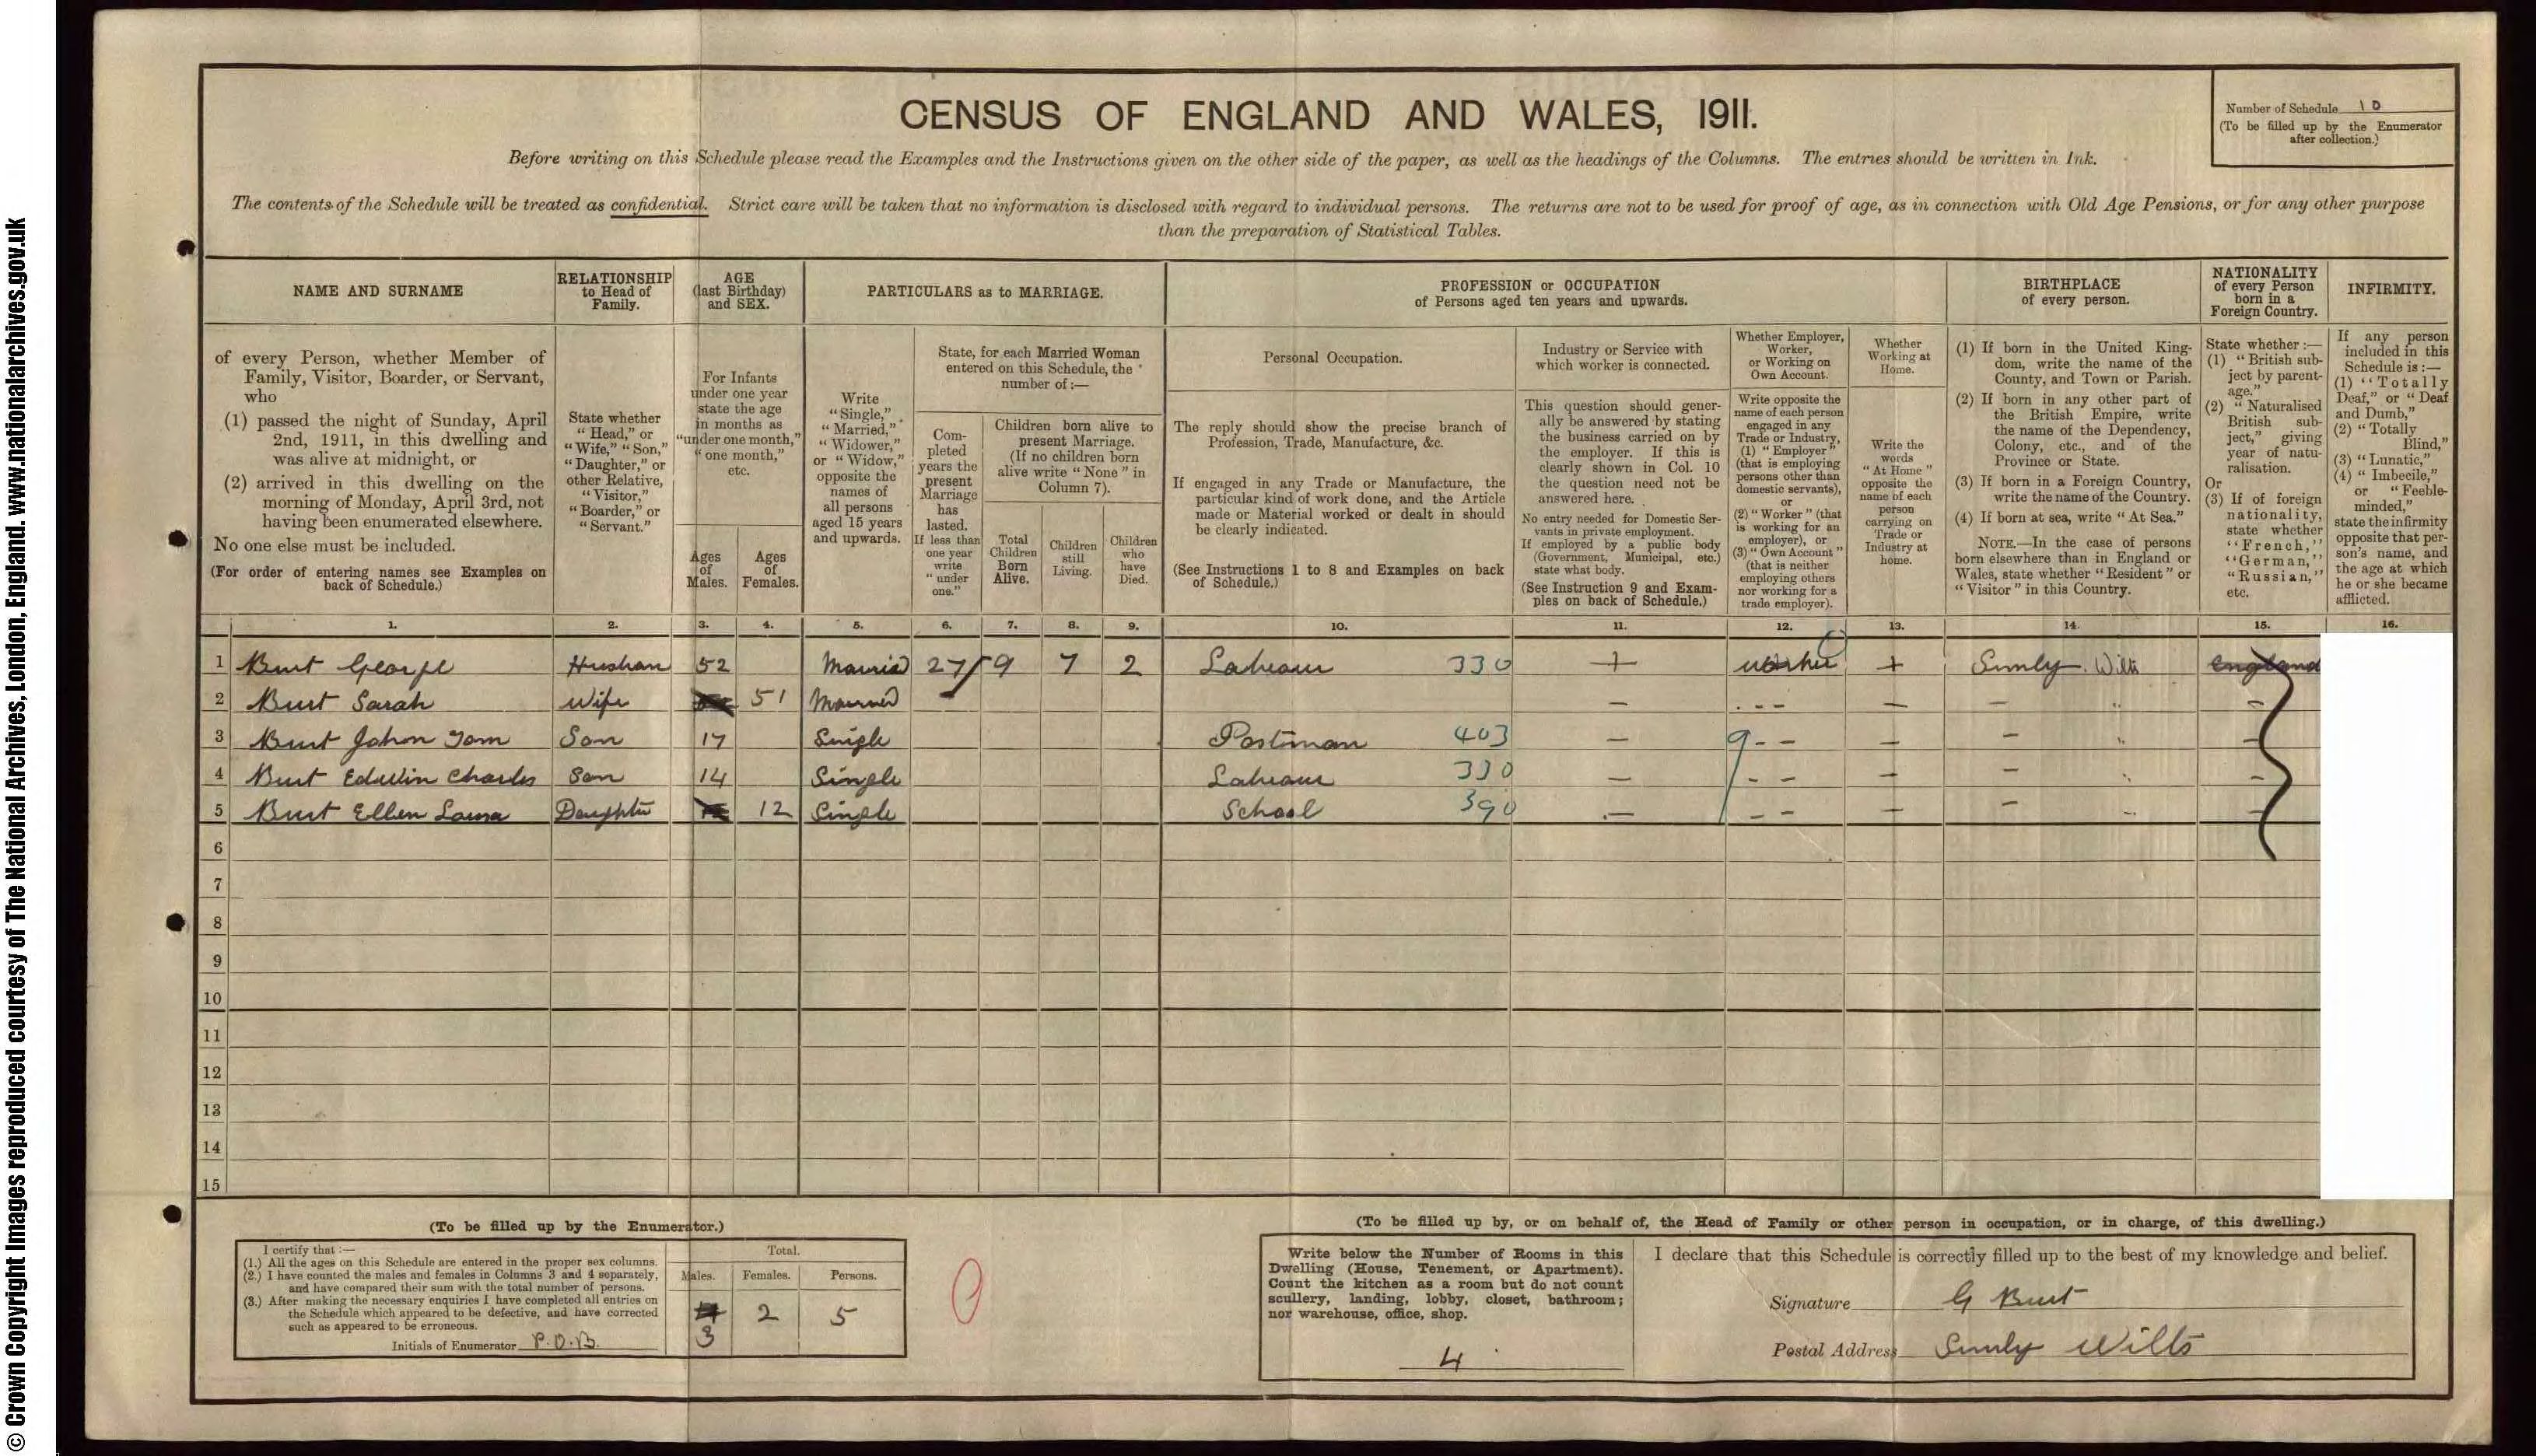 © Crown Copyright Images reproduced courtesy of The National Archives, London, England. www.nationalarchives.gov.uk
CENSUS OF ENGLAND AND WALES, 1911.
Number of Schedule 10
(To be filled up by the Enumerator
after collection.)
Before writing on this Schedule please read the Examples and the Instructions given on the other side of the paper, as well as the headings of the Columns. The entries should be written in Ink.
The contents of the Schedule will be treated as confidential. Strict care will be taken that no information is disclosed with regard to individual persons. The returns are not to be used for proof of age, as in connection with Old Age Pensions, or for any other purpose
than the preparation of Statistical Tables.
NAME AND SURNAME
of every Person, whether Member of
Family, Visitor, Boarder, or Servant,
who
(1) passed the night of Sunday, April
2nd, 1911, in this dwelling and
was alive at midnight, or
(2) arrived in this dwelling on the
morning of Monday, April 3rd, not
having been enumerated elsewhere.
No one else must be included.
(For order of entering names see Examples on
back of Schedule.)
RELATIONSHIP
to Head of
Family.
State whether
"Head," or
"Wife," "Son,"
"Daughter," or
other Relative,
"Visitor,"
"Boarder," or
"Servant."
AGE
(last Birthday)
and SEX.
For Infants
under one year
state the age
in months as
"under one month,"
"one month,"
etc.
Ages
of
Males.
Ages
of
Females.
PARTICULARS as to MARRIAGE.
Write
"Single,"
"Married,"
"Widower,"
or "Widow,"
opposite the
names of
all persons
aged 15 years
and upwards.
State, for each Married Woman
entered on this Schedule, the
number of:—
Com-
pleted
years the
present
Marriage
has
lasted.
If less than
one year
write
"under
one."
Children born alive to
present Marriage.
(If no children born
alive write "None" in
Column 7).
Total
Children
Born
Alive.
Children
still
Living.
Children
who
have
Died.
PROFESSION or OCCUPATION
of Persons aged ten years and upwards.
Personal Occupation.
The reply should show the precise branch of
Profession, Trade, Manufacture, &c.
If engaged in any Trade or Manufacture, the
particular kind of work done, and the Article
made or Material worked or dealt in should
be clearly indicated.
(See Instructions 1 to 8 and Examples on back
of Schedule.)
Industry or Service with
which worker is connected.
This question should gener-
ally be answered by stating
the business carried on by
the employer. If this is
clearly shown in Col. 10
the question need not be
answered here.
No entry needed for Domestic Ser-
vants in private employment.
If employed by a public body
(Government, Municipal, etc.)
state what body.
(See Instruction 9 and Exam-
ples on back of Schedule.)
Whether Employer,
Worker,
or Working on
Own Account.
Write opposite the
name of each person
engaged in any
Trade or Industry,
(1) "Employer"
(that is employing
persons other than
domestic servants),
or
(2) "Worker" (that
is working for an
employer), or
(3) "Own Account"
(that is neither
employing others
nor working for a
trade employer).
Whether
Working at
Home.
Write the
words
"At Home"
opposite the
name of each
person
carrying on
Trade or
Industry at
home.
BIRTHPLACE
of every person.
(1) If born in the United King-
dom, write the name of the
County, and Town or Parish.
(2) If born in any other part of
the British Empire, write
the name of the Dependency,
Colony, etc., and of the
Province or State.
(3) If born in a Foreign Country,
write the name of the Country.
(4) If born at sea, write "At Sea."
NOTE.—In the case of persons
born elsewhere than in England or
Wales, state whether "Resident" or
"Visitor" in this Country.
NATIONALITY
of every Person
born in a
Foreign Country.
State whether:—
(1) "British sub-
ject by parent-
age."
(2) "Naturalised
British sub-
ject," giving
year of natu-
ralisation.
Or
(3) If of foreign
nationality,
state whether
"French,"
"German,"
"Russian,"
etc.
INFIRMITY.
If any person
included in this
Schedule is:—
(1) "Totally
Deaf," or "Deaf
and Dumb,"
(2) "Totally
Blind,"
(3) "Lunatic,"
(4) "Imbecile,"
or "Feeble-
minded,"
state the infirmity
opposite that per-
son's name, and
the age at which
he or she became
afflicted.
1. 2. 3. 4. 5. 6. 7. 8. 9. 10. 11. 12. 13. 14. 15. 16.
1 Burt George Husban 52 Married 27 9 7 2 Labeour 330 Worker Wilts England
2 Burt Sarah Wife 51 Married
3 Burt John Tom Son 17 Single Postman 403 9
4 Burt Edwin Charles Son 14 Single Labeour 330
5 Burt Ellen Laura Daughter 12 Single School 390
6
7
8
9
10
11
12
13
14
15
(To be filled up by the Enumerator.)
I certify that:—
(1.) All the ages on this Schedule are entered in the proper sex columns.
(2.) I have counted the males and females in Columns 3 and 4 separately,
and have compared their sum with the total number of persons.
(3.) After making the necessary enquiries I have completed all entries on
the Schedule which appeared to be defective, and have corrected
such as appeared to be erroneous.
Initials of Enumerator P.O.B.
Total.
Males. Females. Persons.
4 2 5
3
(To be filled up by, or on behalf of, the Head of Family or other person in occupation, or in charge, of this dwelling.)
Write below the Number of Rooms in this
Dwelling (House, Tenement, or Apartment).
Count the kitchen as a room but do not count
scullery, landing, lobby, closet, bathroom;
nor warehouse, office, shop.
4
I declare that this Schedule is correctly filled up to the best of my knowledge and belief.
Signature G Burt
Postal Address Wilts